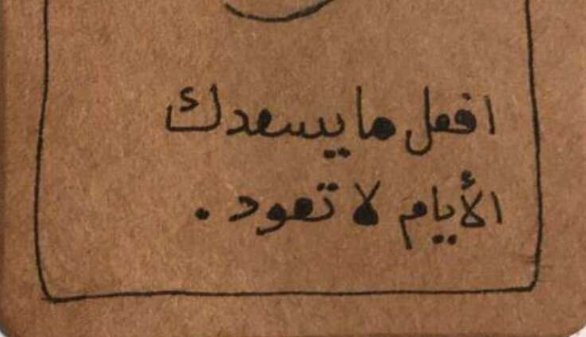 افعل ما يسعدك
الأيام لا تعود .